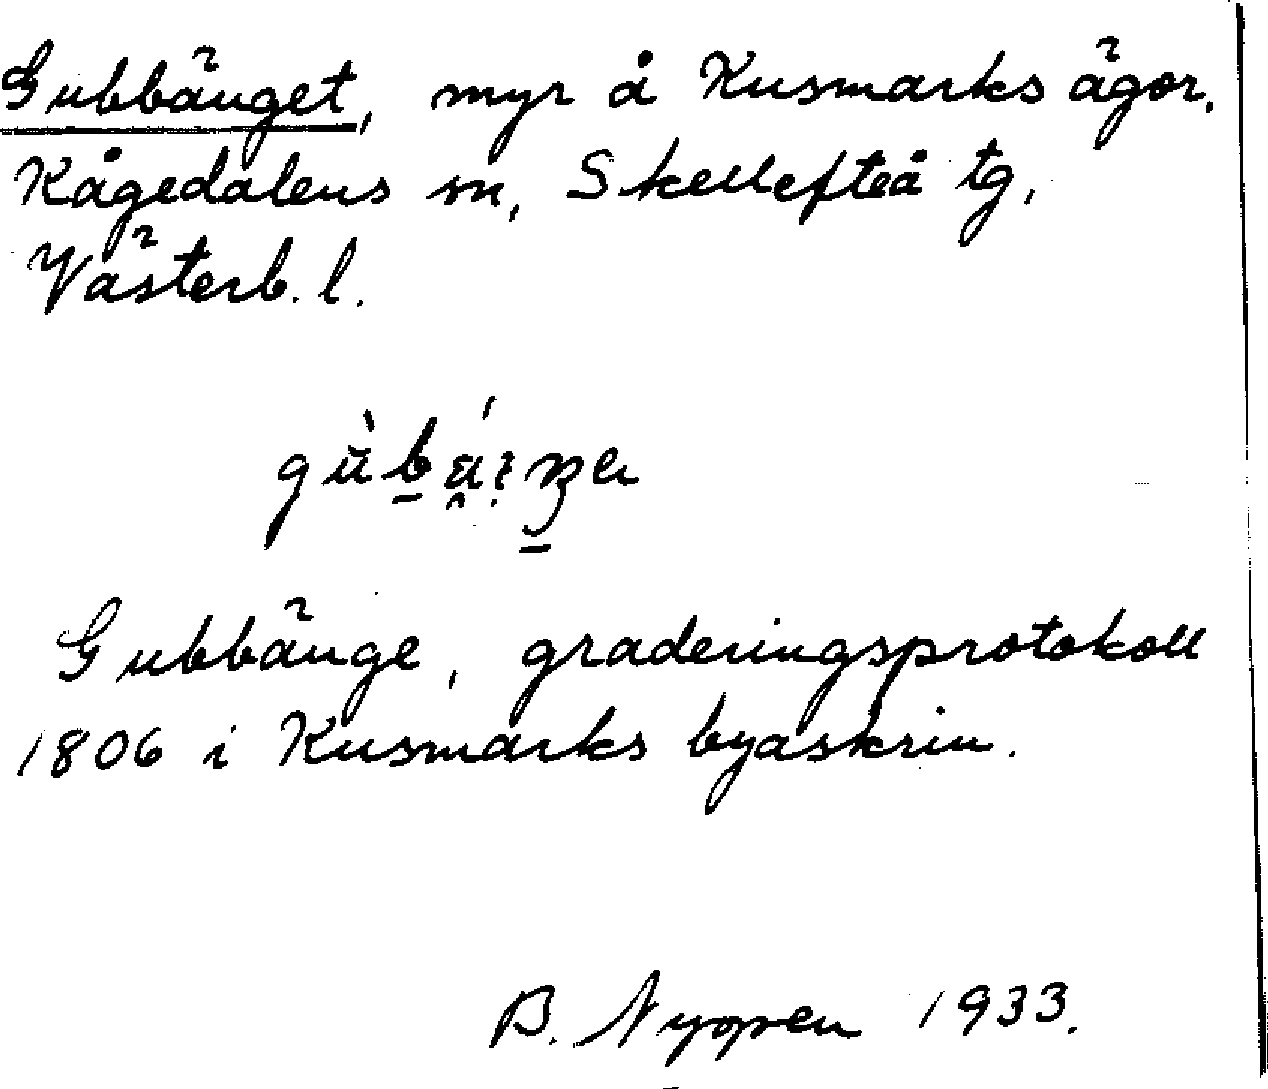 Gubbänget, myr å Kusmarks ägor,
Kågedalens sn, Skellefteå tg,
Västerb. l.
Gubbänge, graderingsprotokoll
1806 i Kusmarks byaskrin.
B. Nygren 1933.